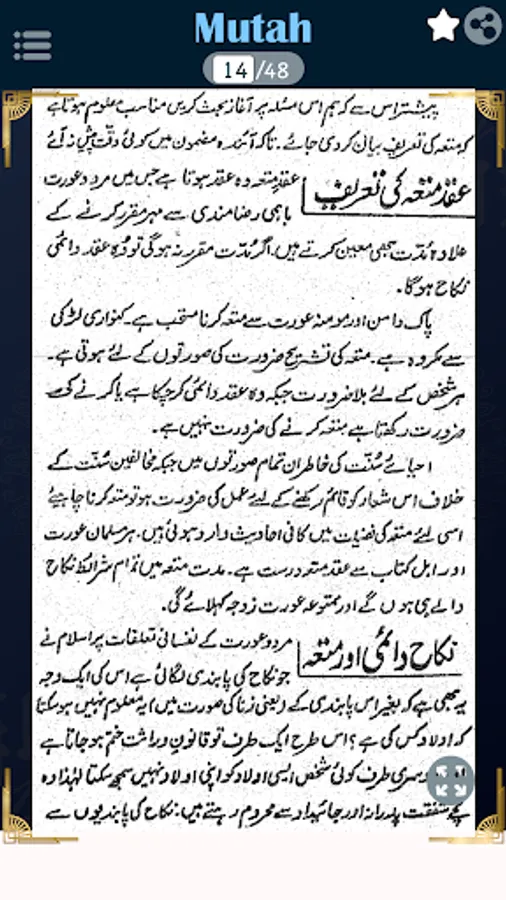 Mutah
14/48
پیشتر اس سے کہ ہم اس مسئلہ پر آغاز بحث کریں مناسب معلوم ہوتا ہے
کہ متعہ کی تعریف بیان کر دی جائے۔ تاکہ آئندہ مضمون میں کوئی دقت پیش نہ آئے
عقد متعہ کی تعریف
عقد متعہ وہ عقد ہوتا ہے جس میں مرد و عورت
باہمی رضامندی سے مہر مقرر کرنے کے
علاوہ مدت بھی معین کرتے ہیں۔ اگر مدت مقرر نہ ہو گی تو وہ عقد دائمی
نکاح ہوگا۔
پاک دامن اور مومنہ عورت سے متعہ کرنا مستحب ہے۔ کنواری لڑکی
سے مکروہ ہے۔ متعہ کی تشریح ضرورت کی صورتوں کے لئے ہوتی ہے۔
ہر شخص کے لئے بلا ضرورت جبکہ وہ عقد دائمی کر چکا ہے یا کرنے کی
ضرورت رکھتا ہے متعہ کرنے کی ضرورت نہیں ہے۔
احیائے سُنّت کی خاطر ان تمام صورتوں میں جبکہ مخالفین سُنّت کے
خلاف اس شعار کو قائم رکھنے کے لئے عمل کی ضرورت ہو تو متعہ کرنا چاہیئے
اسی لئے متعہ کی فضیلت میں کافی احادیث وارد ہوئی ہیں۔ ہر مسلمان عورت
اور اہل کتاب سے عقد متعہ درست ہے۔ مدت متعہ میں تمام شرائط نکاح
والے ہی ہوں گے اور ممتوعہ عورت زوجہ کہلائے گی۔
نکاح دائمی اور متعہ
مرد و عورت کے نفسانی تعلقات پر اسلام نے
جو نکاح کی پابندی لگائی ہے اس کی ایک وجہ
یہ بھی ہے کہ بغیر اس پابندی کے (یعنی زنا کی صورت میں) یہ معلوم نہیں ہو سکتا
کہ اولاد کس کی ہے؟ اس طرح ایک طرف تو قانونِ وراثت ختم ہو جاتا ہے
دوسری طرف کوئی شخص ایسی اولاد کو اپنی اولاد نہیں سمجھ سکتا لہٰذا وہ
بچے شفقت پدرانہ اور جائیداد سے محروم رہتے ہیں۔ نکاح کی پابندیوں سے